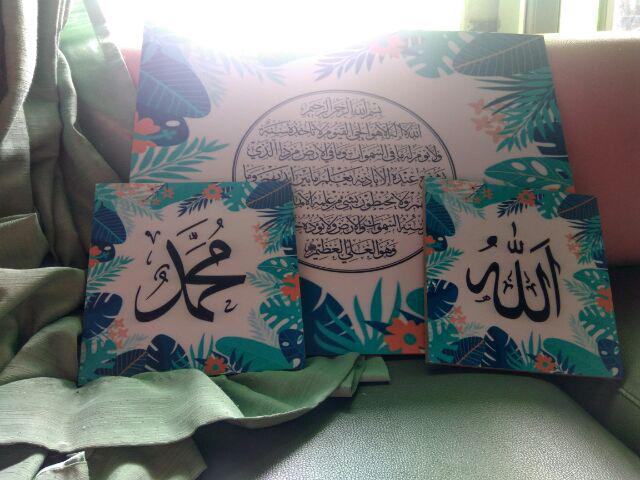 بسم الله الرحمن الرحيم
الله لا إله إلا هو الحي القيوم لا تأخذه سنة
ولا نوم له ما في السموات وما في الأرض من ذا الذي
عنده إلا بإذنه يعلم ما بين أيديهم وما
ولا يحيطون بشيء من علمه
السموات والأرض ولا يؤده
وهو العلي العظيم
محمد
الله